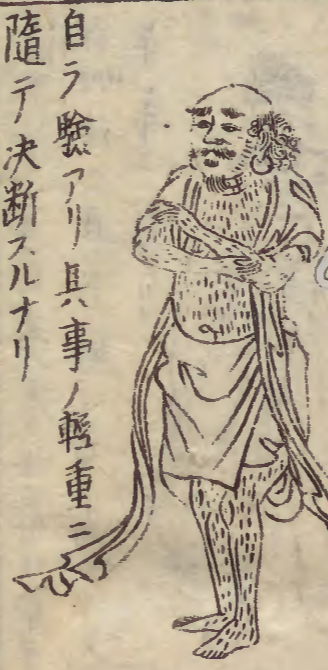 自ラ驗アリ其事ノ軽重ニ
隨テ決断スルナリ